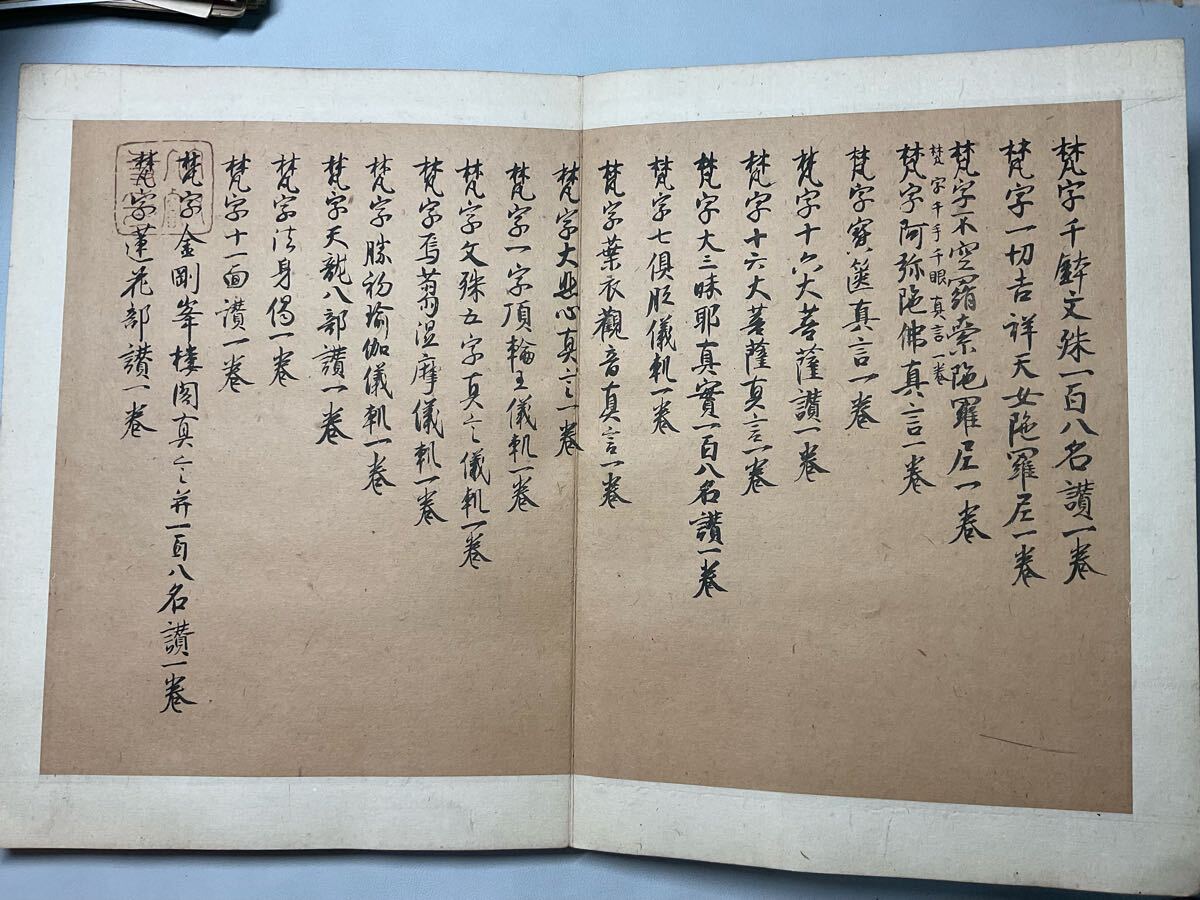 梵字千鉢文殊一百八名讃一卷
梵字一切吉祥天女陁羅尼一卷
梵字不空羂索陁羅尼一卷
梵字千手千眼真言一卷
梵字阿弥陁佛真言一卷
梵字寶篋真言一卷
梵字十六大菩薩讃一卷
梵字十六大菩薩真言一卷
梵字大三昧耶真實一百八名讃一卷
梵字七俱胝儀軌一卷
梵字葉衣觀音真言一卷
梵字大悲心真言一卷
梵字一字頂輪王儀軌一卷
梵字文殊五字真言儀軌一卷
梵字烏蒭澁摩儀軌一卷
梵字勝初瑜伽儀軌一卷
梵字天龍八部讃一卷
梵字法身偈一卷
梵字十一面讃一卷
梵字金剛峯樓閣真言并一百八名讃一卷
梵字蓮花部讃一卷